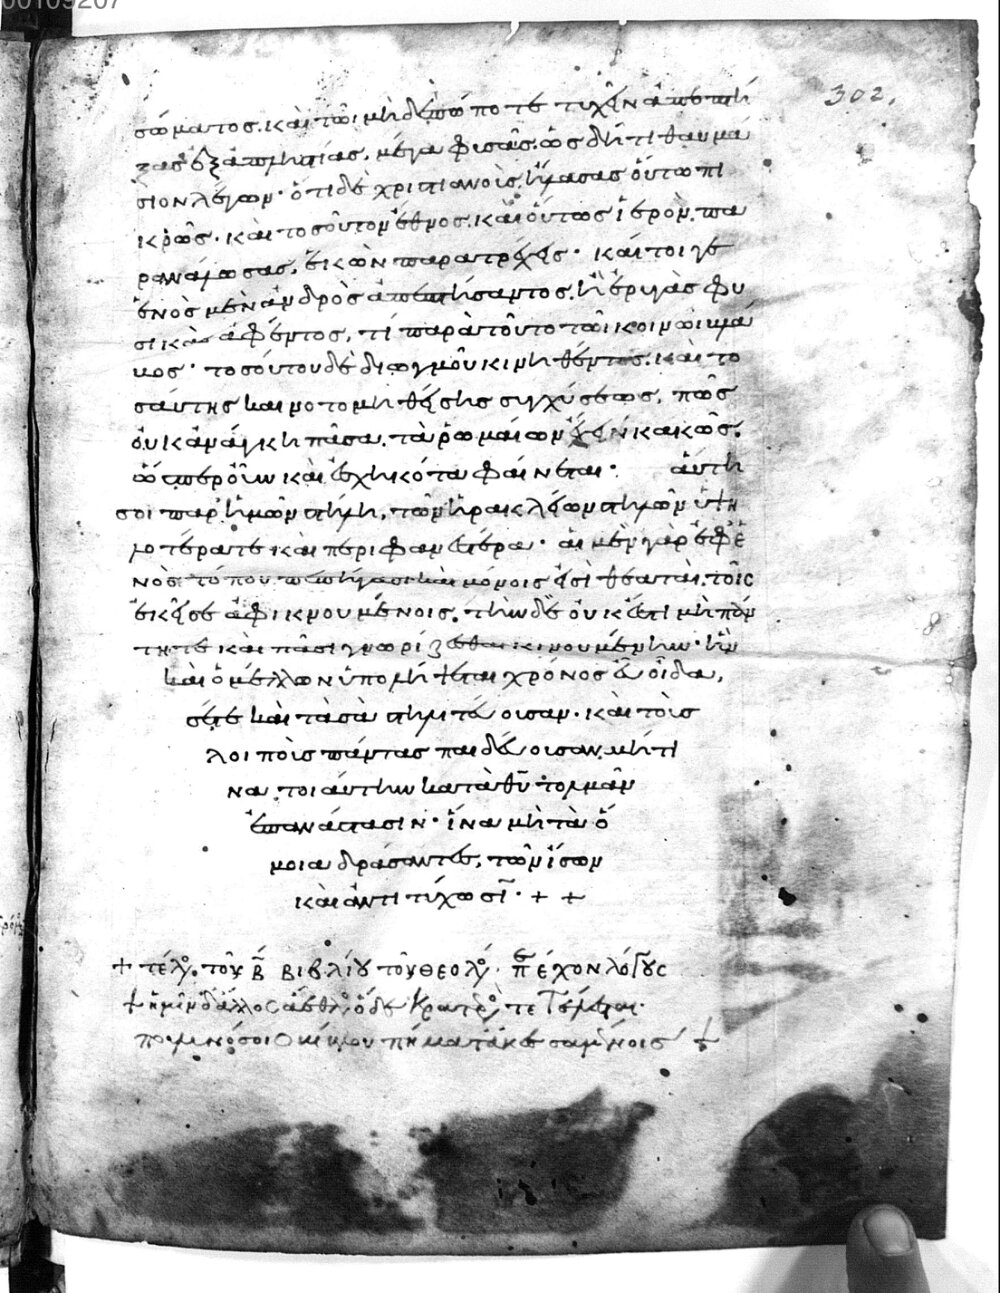 00109207
302.
σώματος. καὶ τῶι μὴδέπω ποτὲ τυχεῖν ἀποτμή
ξας ἐξ ἀτμητίας. μέγα φυσᾶς. ὡς δή τι θαυμά
σιον λέγων· ὅτι δὲ χριστιανοῖς ἤμασας οὕτω πι
κρῶς· καὶ τοσοῦτον ἔθνος. καὶ οὕτως ἱερὸν. πα
ρανα ώσας, ἑκὼν παρατρέχεις· καί τοι γε
ἑνὸς μὲν ἀνδρὸς ἀποστήσαντος. ἢ ἑστίας φυ
σικὰς ἀφέντος, τί παρὰ τοῦτο τῶι κοινῶι
κος· τοσούτου δὲ διωγμοῦ κινηθέντος. καὶ το
σαύτης καινοτομηθείσης συγχύσεως, πῶς
οὐκ ἀνάγκη πᾶσα. τὰ ῥωμαίων ἔχειν κακῶς.
ὥσπερ οὖν καὶ ἐσχηκότα φαίνεται· αὕτη
σοι παρ' ἡμῶν στήλη, τῶν ἡρακλείων στηλῶν ὑψη
λοτέρα τε καὶ περιφανεστέρα· αἱ μὲν γὰρ ἐφ' ἑ
νὸς τόπου πεπήγασι καὶ μόνοις εἰσὶ θεαταὶ. τοῖς
ἐκεῖσε ἀφικνουμένοις. τὴν δὲ οὐκ ἔστι μὴ παν
τῆ τε καὶ πᾶσι γνωρίζεσθαι κινουμένην· ἣν
καὶ ὁ μέλλων ὑπολήψεται χρόνος εὖ οἶδα,
σέ τε καὶ τὰ σὰ στηλιτεύουσαν· καὶ τοὺς
λοιποὺς πάντας παιδεύουσαν. μή τι
να τοιαύτην κατὰ θῦ τολμᾶν
ἐπανάστασιν· ἵνα μὴ τὰ ὅ
μοια δράσαντες, τῶν ἴσων
καὶ ἀντιτύχωσι· + +
+ τέλος τοῦ β βιβλίου τοῦ θεολόγου. ἔχον λόγους